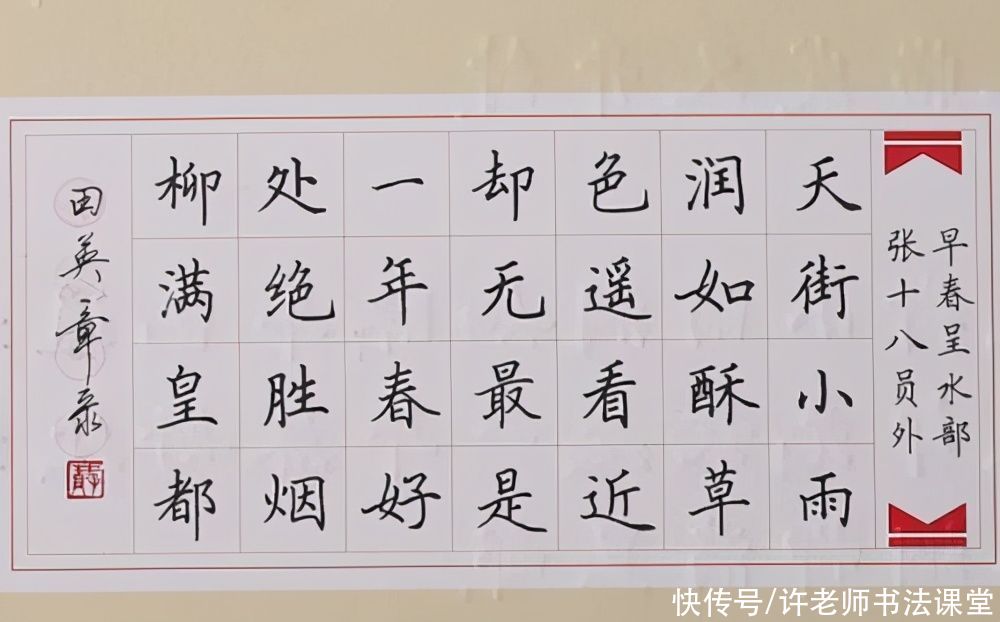 早春呈水部
张十八员外
天街小雨
润如酥草
色遥看近
却无最是
一年春好
处绝胜烟
柳满皇都
田英章录
快传号/许老师书法课堂